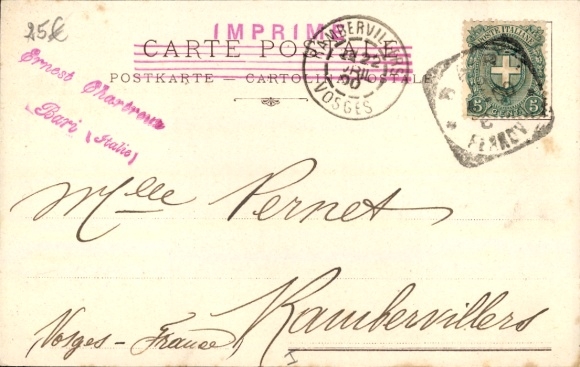 25€
IMPRIMÉ
CARTE POSTALE
POSTKARTE — CARTOLINA POSTALE
Ernest Chartroux
Bari (Italie)
RAMBERVILLERS
22
VOSGES
POSTE ITALIANE
5 5
FERROV
Mlle Pernet
Rambervillers
Vosges - France